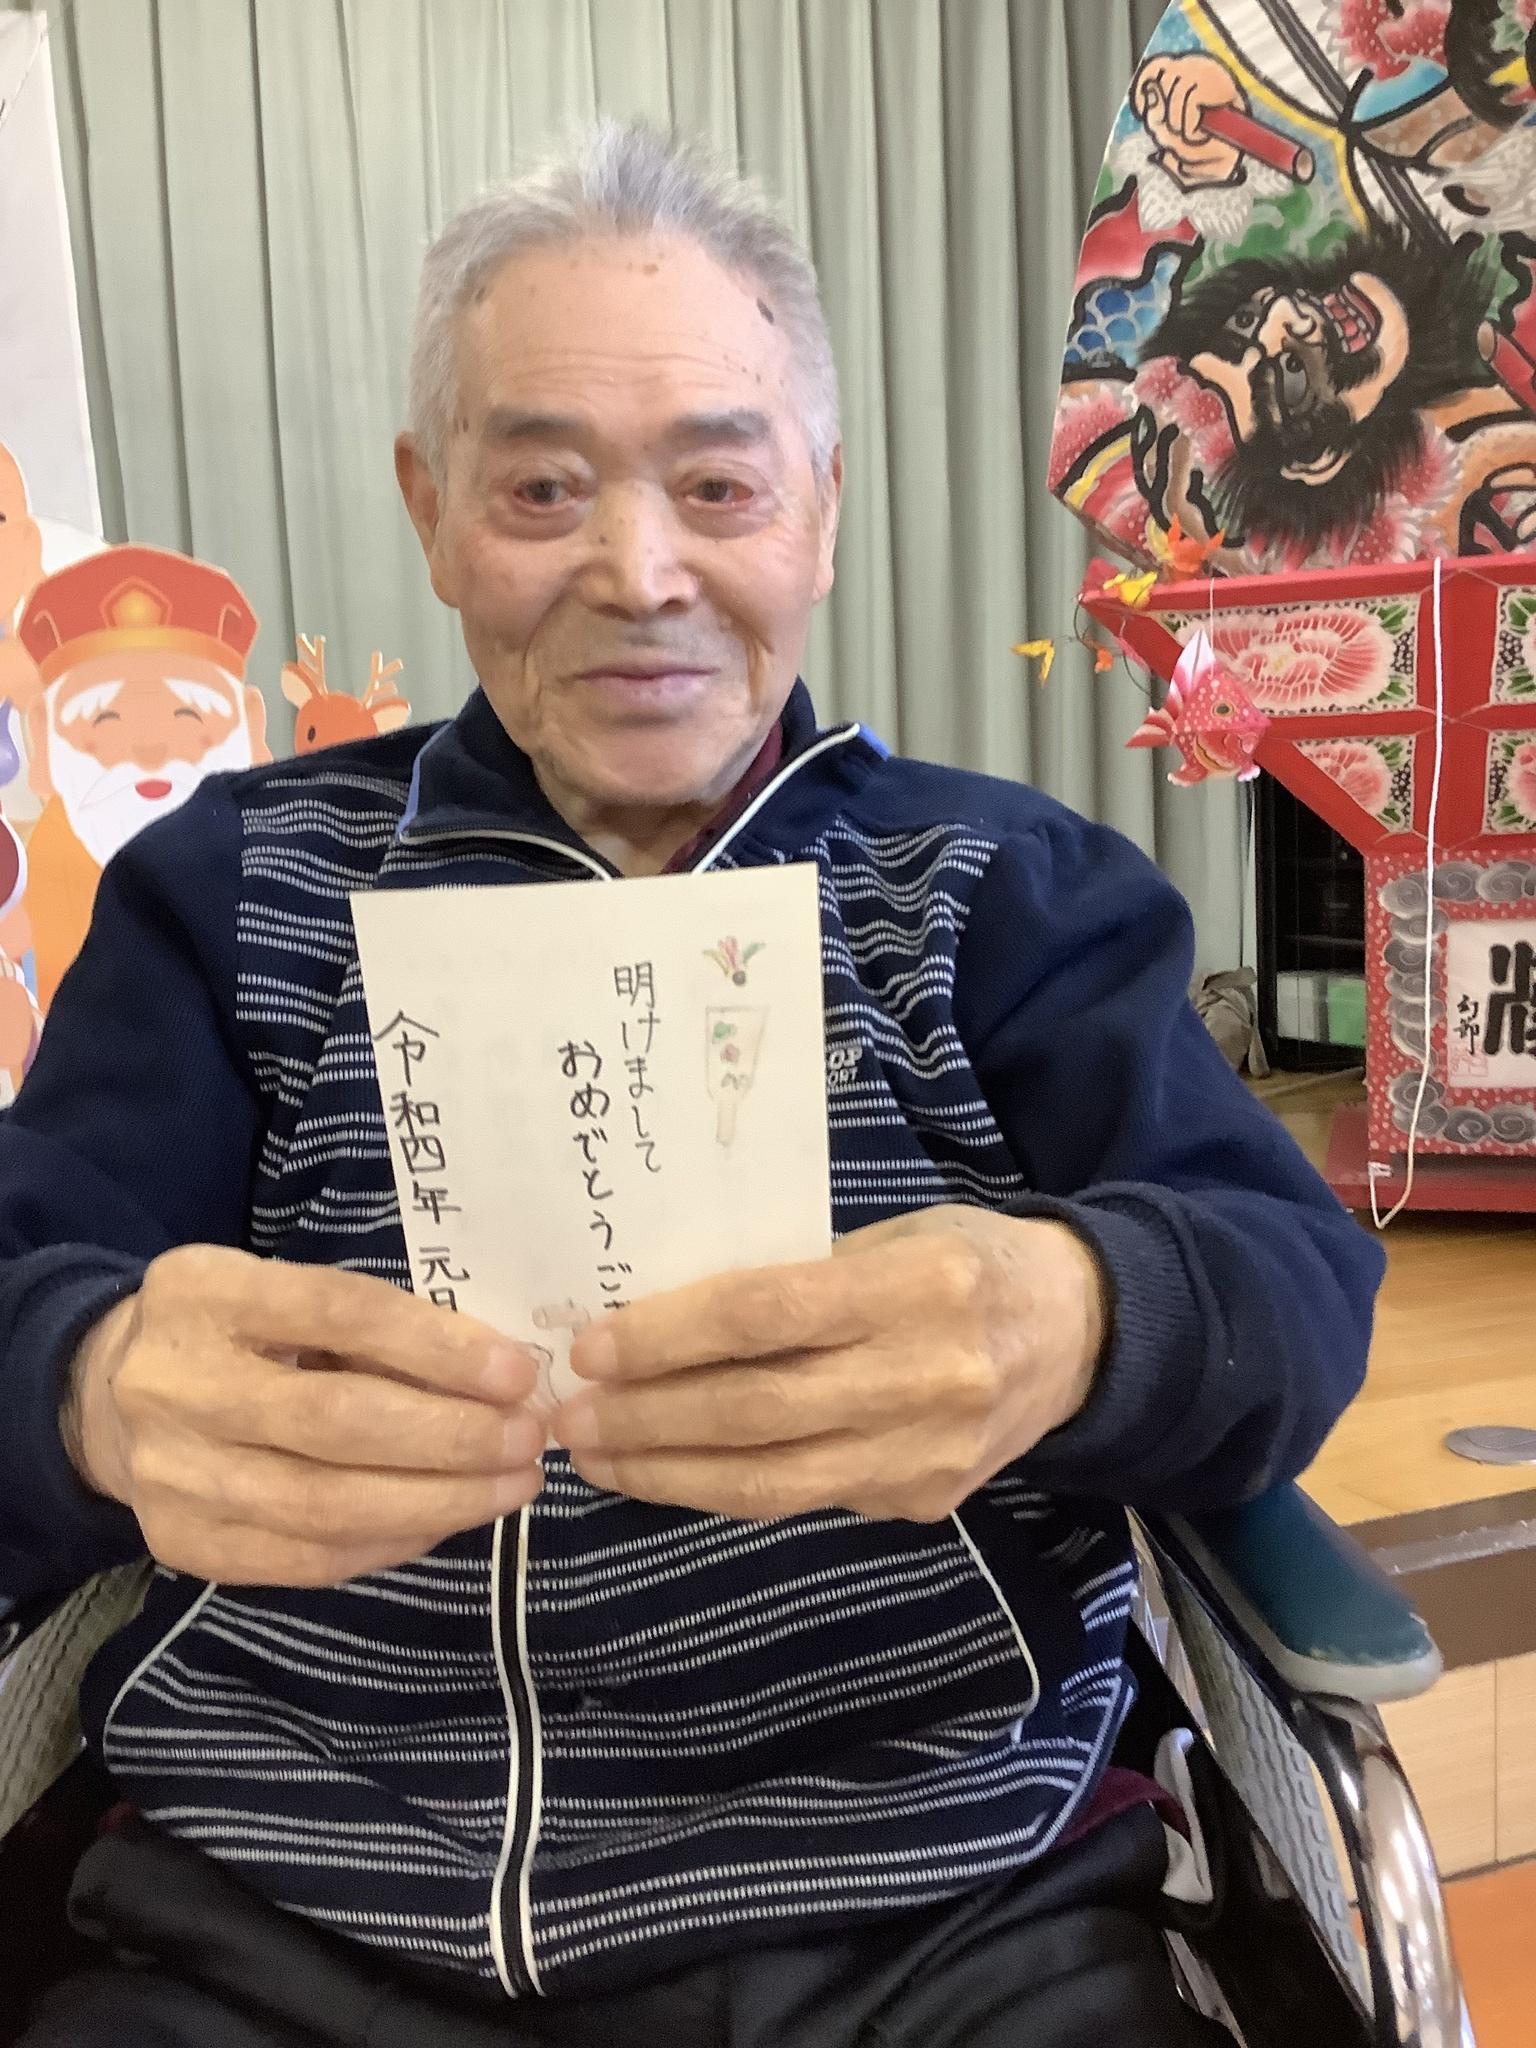 明けまして
おめでとうご
令和四年 元日
OP
ORT
幻部